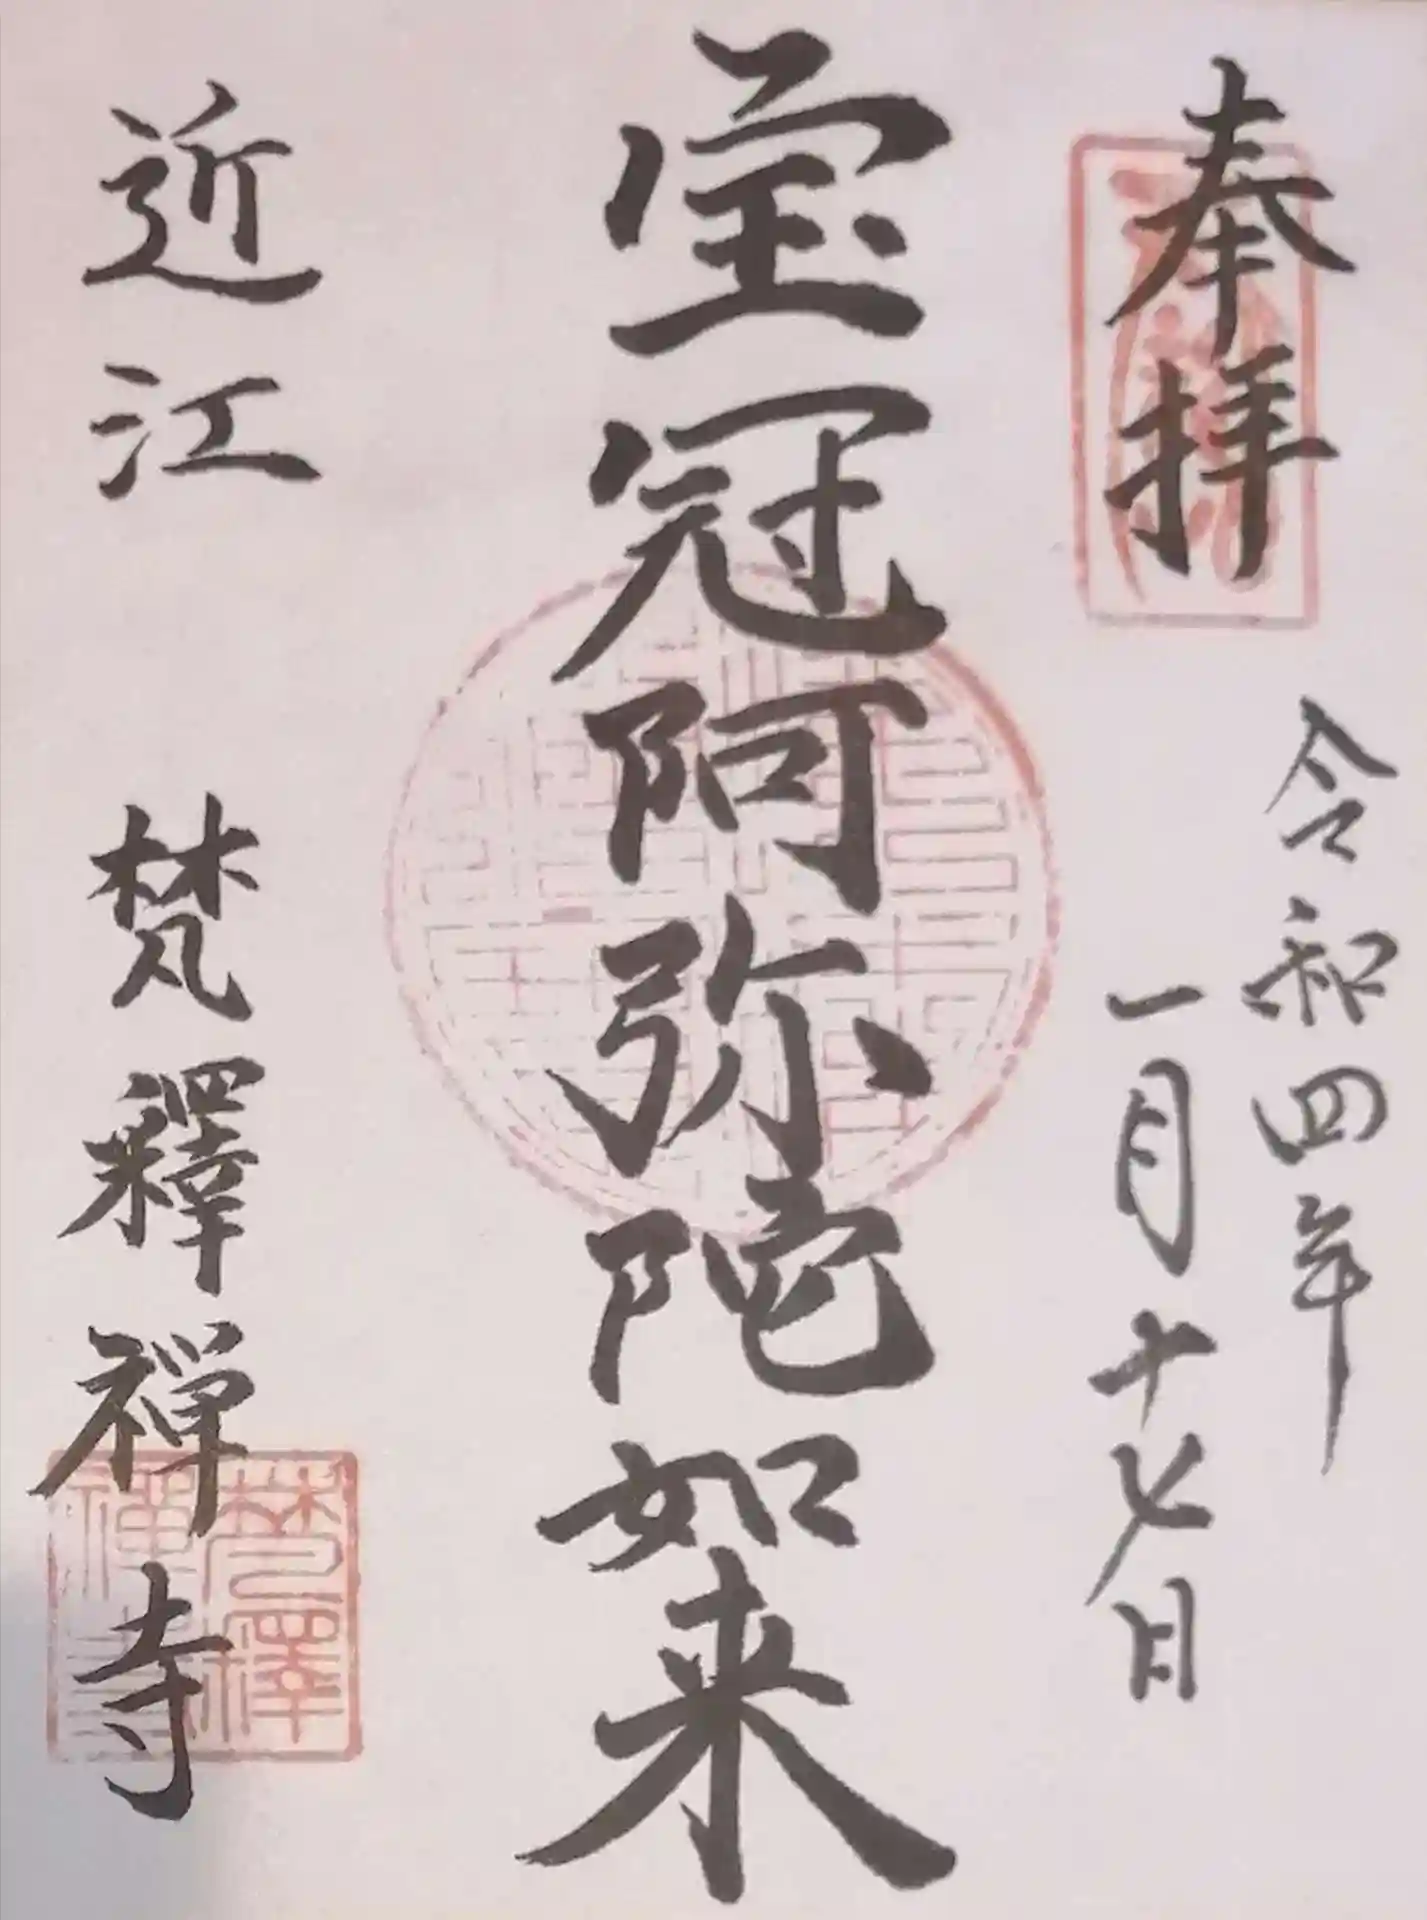 奉拝
令和四年
一月十七日
宝冠阿弥陀如来
近江
梵釋禅寺
梵釋
禅寺